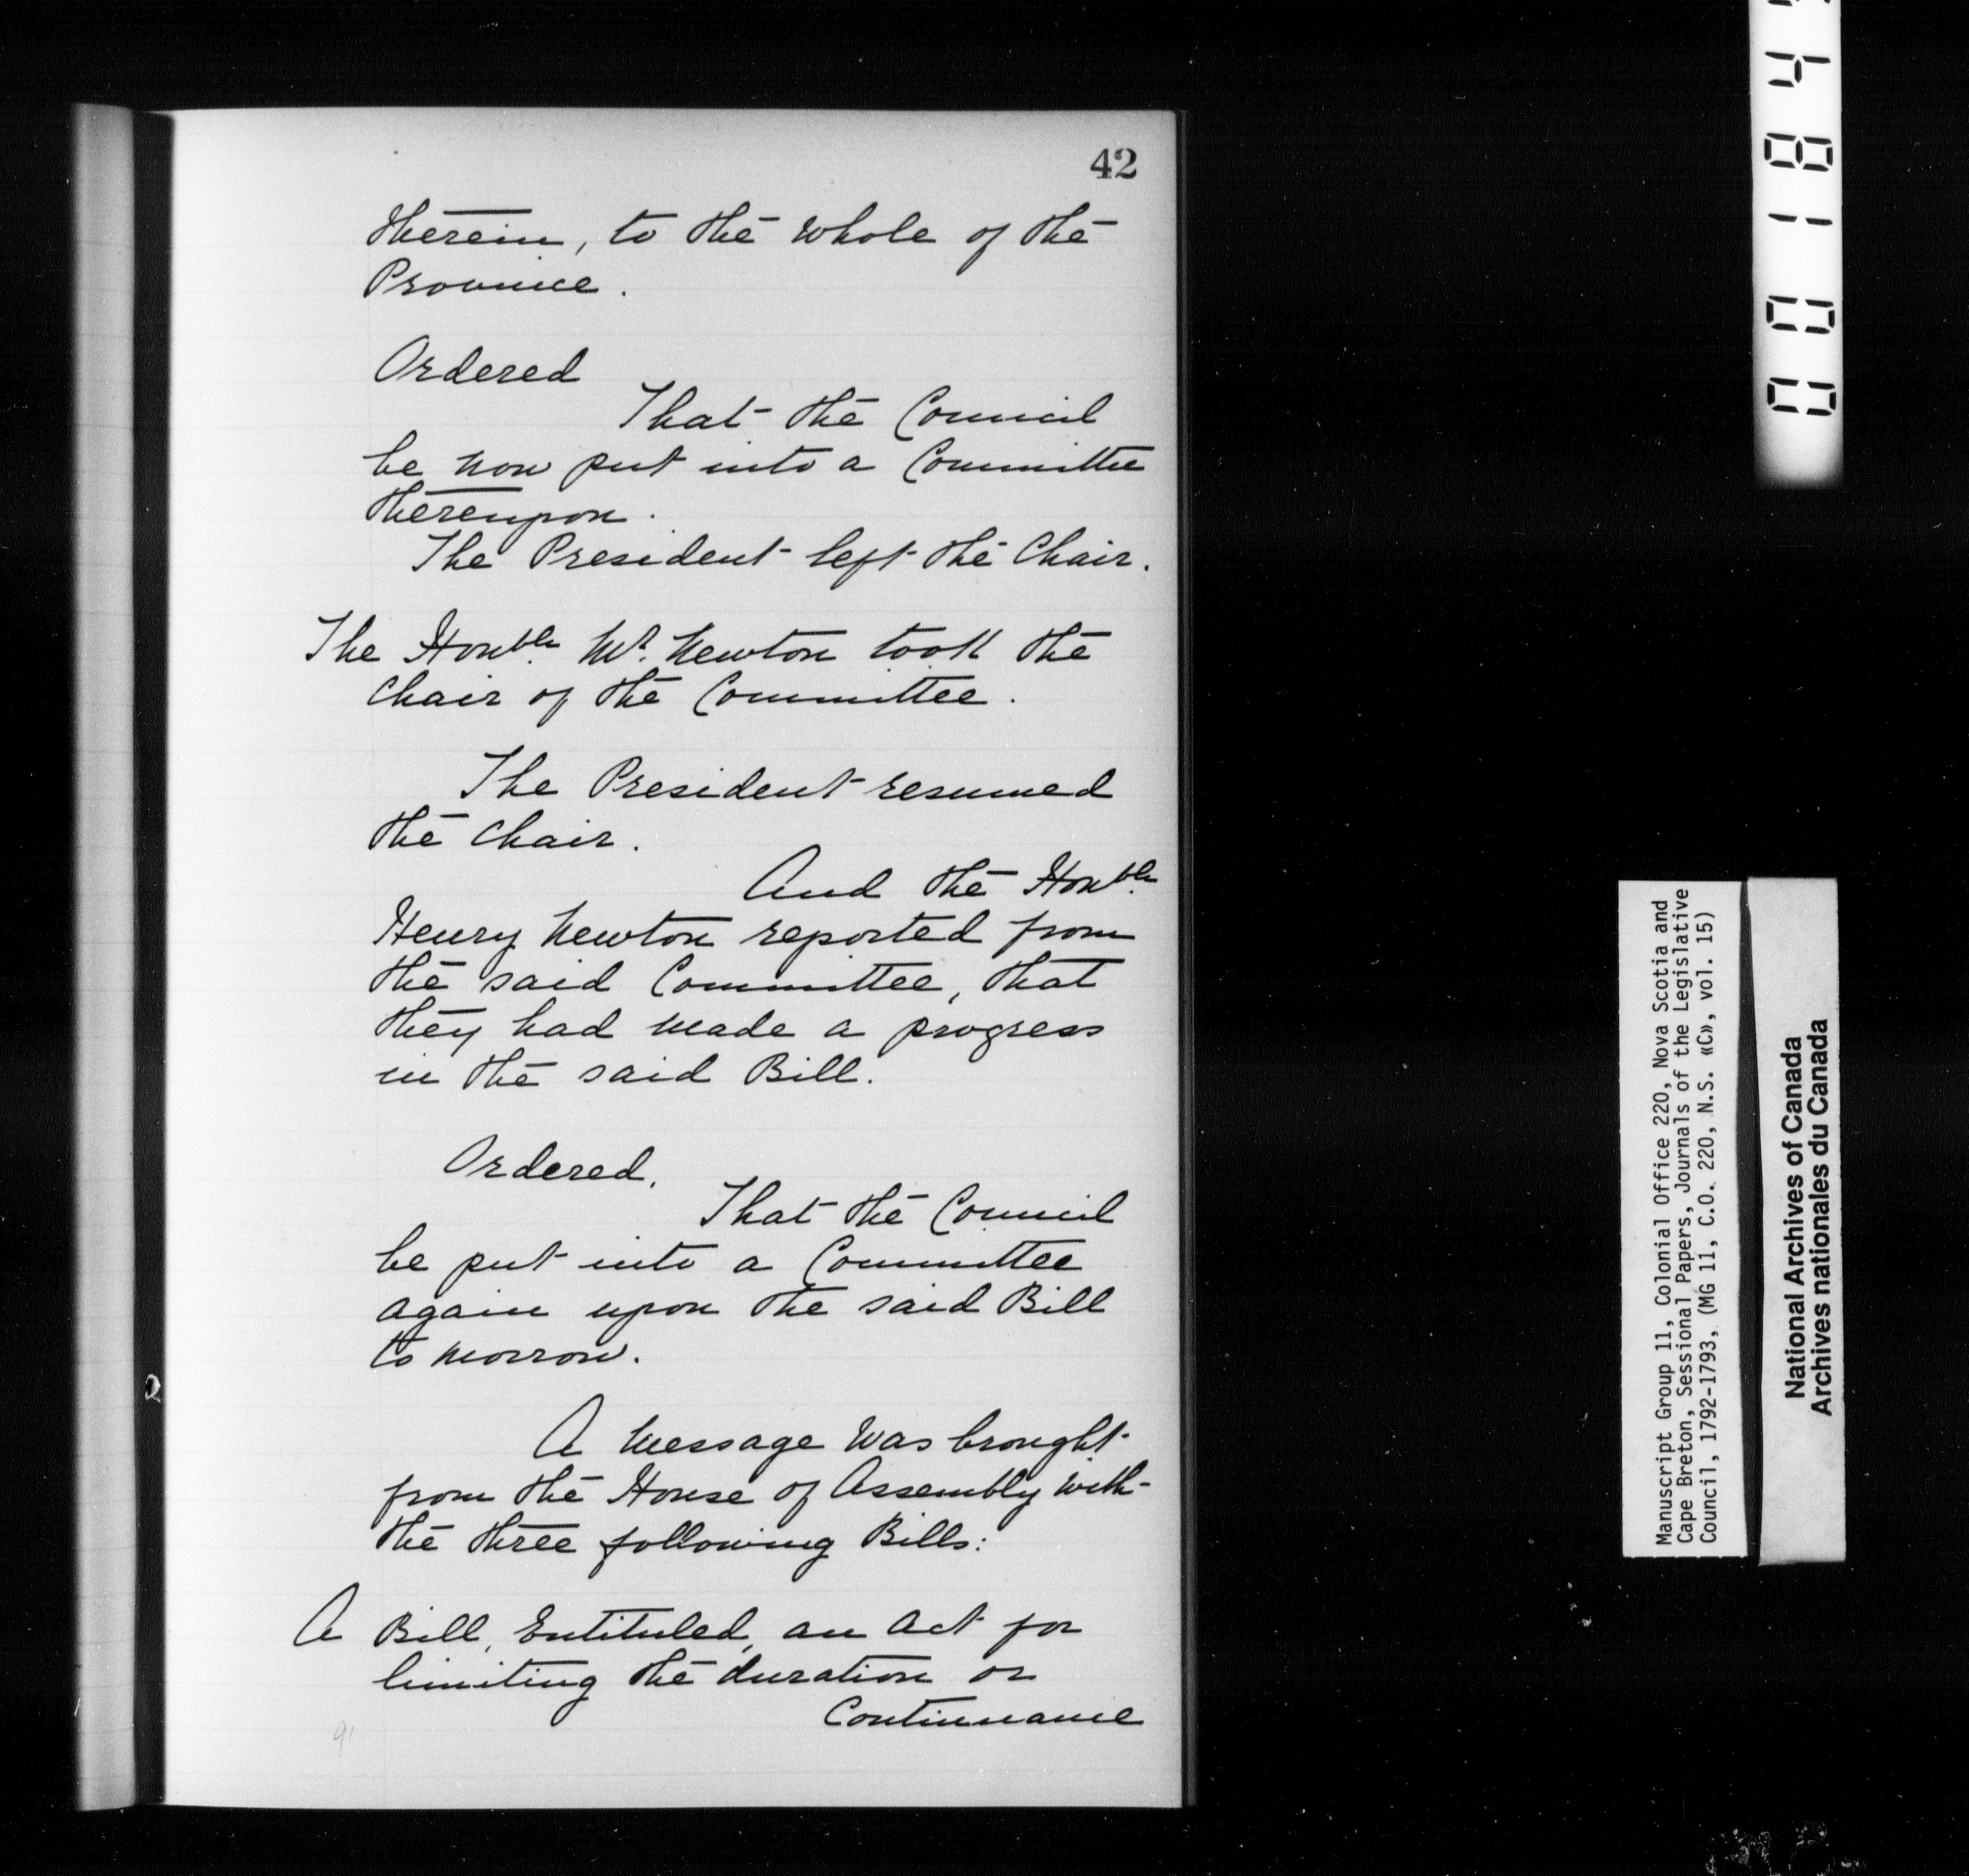 42
therein, to the whole of the
Province.
Ordered
That the Council
be now put into a Committee
thereupon.
The President left the Chair.
The Honble. Mr. Newton took the
Chair of the Committee.
The President resumed
the Chair.
And the Honble.
Henry Newton reported from
the said Committee, that
they had made a progress
in the said Bill.
Ordered,
That the Council
be put into a Committee
again upon the said Bill
to morrow.
A Message was brought
from the House of Assembly with
the three following Bills:
A Bill, Entituled, an Act for
limiting the duration or
Continuance
91
Manuscript Group 11, Colonial Office 220, Nova Scotia and
Cape Breton, Sessional Papers, Journals of the Legislative
Council, 1792-1793, (MG 11, C.O. 220, N.S. «C», vol. 15)
National Archives of Canada
Archives nationales du Canada